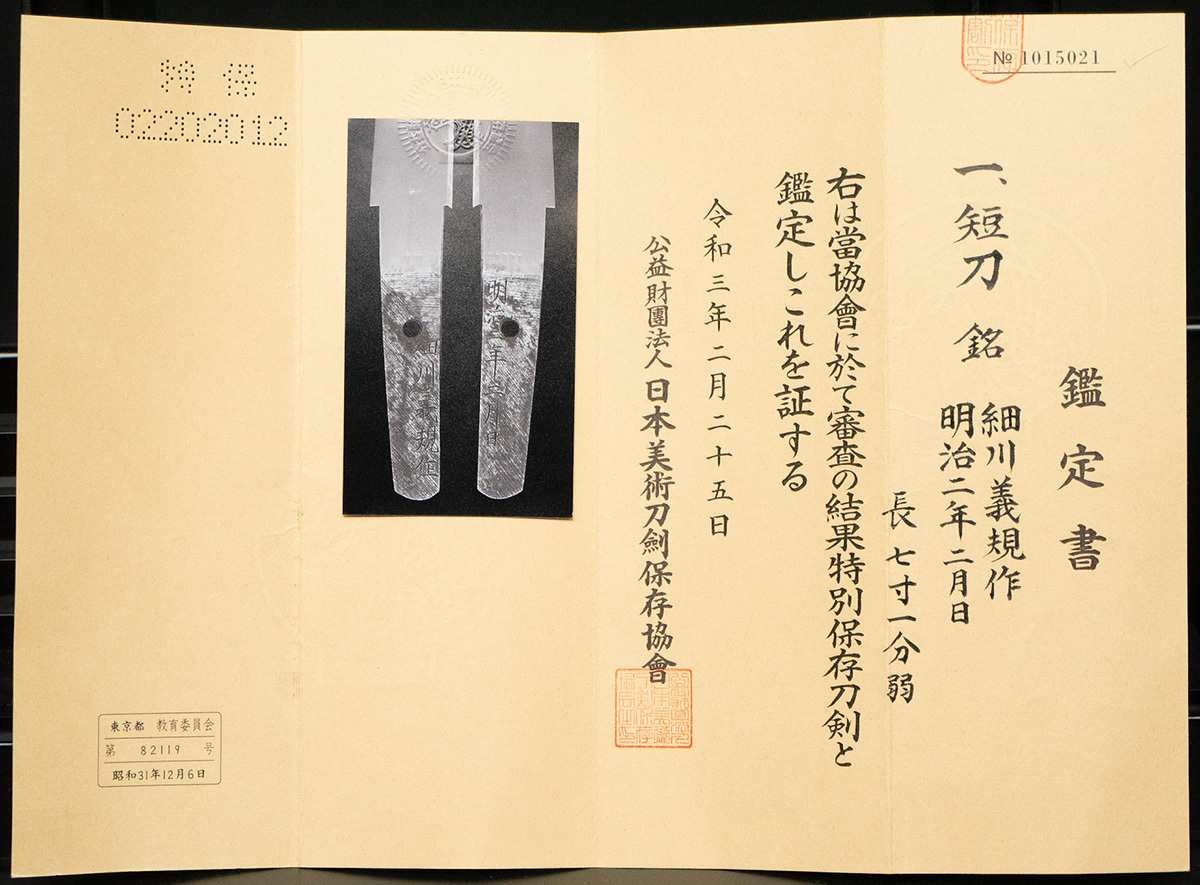 № 1015021
鑑定書
一、短刀 銘 細川義規作
明治二年二月日
長 七寸一分弱
右は當協會に於て審査の結果特別保存刀剣と
鑑定しこれを証する
令和三年二月二十五日
公益財團法人 日本美術刀劍保存協會
明治二年二月日
細川義規作
特保
02202012
東京都 教育委員会
第 82119 号
昭和31年12月6日